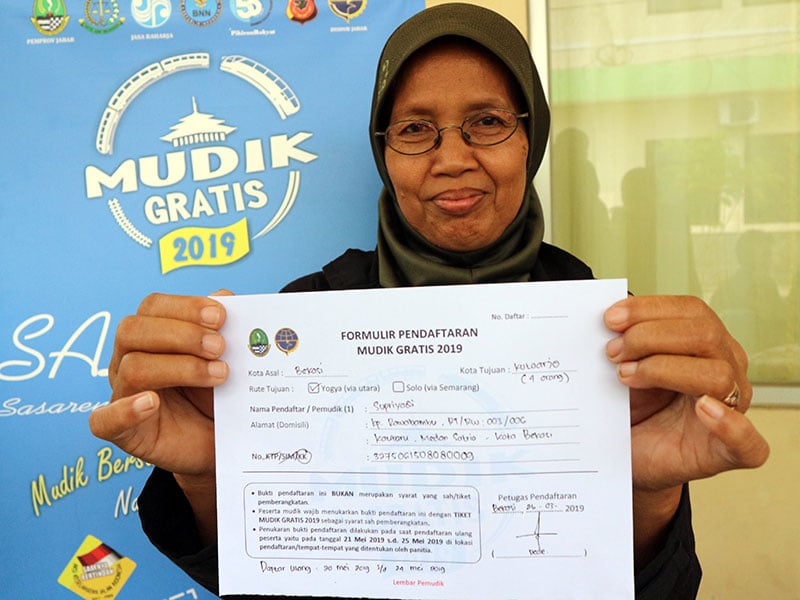 PEMPROV JABAR
JASA RAHARJA
BNN
PikiranRakyat
DISHUB JABAR
MUDIK
GRATIS
2019
SA
Sasaren
Mudik Bers
Na
No. Daftar :
FORMULIR PENDAFTARAN
MUDIK GRATIS 2019
Kota Asal : Bekasi
Kota Tujuan : Kutoarjo
(4 orang)
Rute Tujuan : Yogya (via utara) Solo (via Semarang)
Nama Pendaftar / Pemudik (1) : Supriyati
Alamat (Domisili) : kp. Rawabambu, RT/RW : 003/006
Medan Satria - Kota Bekasi
No. KTP/SIM/KK : 3275061508080009
• Bukti pendaftaran ini BUKAN merupakan syarat yang sah/tiket
pemberangkatan.
• Peserta mudik wajib menukarkan bukti pendaftaran ini dengan TIKET
MUDIK GRATIS 2019 sebagai syarat sah pemberangkatan.
• Penukaran bukti pendaftaran dilakukan pada saat pendaftaran ulang
peserta yaitu pada tanggal 21 Mei 2019 s.d. 25 Mei 2019 di lokasi
pendaftaran/tempat-tempat yang ditentukan oleh panitia.
Petugas Pendaftaran
Bekasi 26 - 03 - 2019
( Dede )
Daftar Ulang : 20 mei 2019 s/d 24 mei 2019
Lembar Pemudik